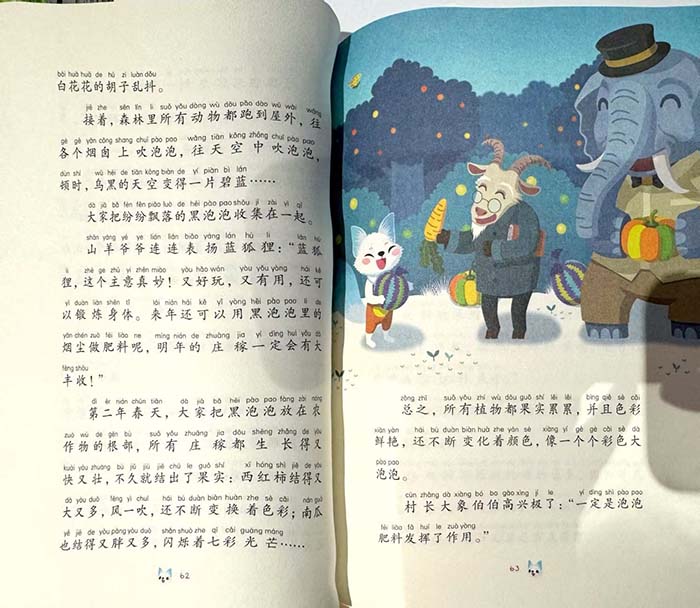 bái huā huā de hú zi luàn dǒu
白花花的胡子乱抖。
jiē zhe sēn lín li suǒ yǒu dòng wù dōu pǎo dào wū wài wǎng
接着，森林里所有动物都跑到屋外，往
gè gè yān cōng shang chuī pào pao wǎng tiān kōng zhōng chuī pào pao
各个烟囱上吹泡泡，往天空中吹泡泡，
dùn shí wū hēi de tiān kōng biàn de yí piàn bì lán
顿时，乌黑的天空变得一片碧蓝……
dà jiā bǎ fēn fēn piāo luò de hēi pào pao shōu jí zài yì qǐ
大家把纷纷飘落的黑泡泡收集在一起。
shān yáng yé ye lián lián biǎo yáng lán hú li lán hú
山羊爷爷连连表扬蓝狐狸：“蓝狐
li zhè ge zhǔ yi zhēn miào yòu hǎo wán yòu yǒu yòng hái kě
狸，这个主意真妙！又好玩，又有用，还可
yǐ duàn liàn shēn tǐ lái nián hái kě yǐ yòng hēi pào pao li de
以锻炼身体。来年还可以用黑泡泡里的
yān chén zuò féi liào ne míng nián de zhuāng jia yí dìng huì yǒu dà
烟尘做肥料呢，明年的庄稼一定会有大
fēng shōu
丰收！”
dì èr nián chūn tiān dà jiā bǎ hēi pào pao fàng zài nóng
第二年春天，大家把黑泡泡放在农
zuò wù de gēn bù suǒ yǒu zhuāng jia dōu shēng zhǎng de yòu
作物的根部，所有庄稼都生长得又
kuài yòu zhuàng bù jiǔ jiù jiē chū le guǒ shí xī hóng shì jiē de yòu
快又壮，不久就结出了果实：西红柿结得又
dà yòu duō fēng yì chuī hái bú duàn biàn huàn zhe sè cǎi nán guā
大又多，风一吹，还不断变换着色彩；南瓜
yě jiē de yòu pàng yòu duō shǎn shuò zhe qī cǎi guāng máng
也结得又胖又多，闪烁着七彩光芒……
62
zǒng zhī suǒ yǒu zhí wù dōu guǒ shí léi léi bìng qiě sè cǎi
总之，所有植物都果实累累，并且色彩
xiān yàn hái bú duàn biàn huà zhe yán sè xiàng yí gè gè cǎi sè dà
鲜艳，还不断变化着颜色，像一个个彩色大
pào pao
泡泡。
cūn zhǎng dà xiàng bó bo gāo xìng jí le yí dìng shì pào pao
村长大象伯伯高兴极了：“一定是泡泡
féi liào fā huī le zuò yòng
肥料发挥了作用。”
63